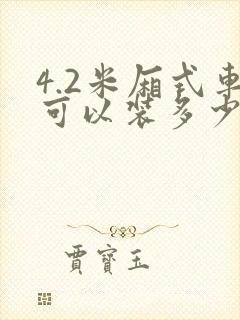 4.2米厢式車
可以装多少
賈寶玉